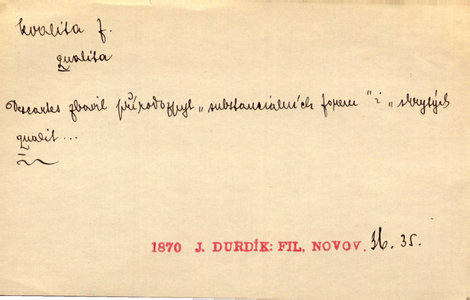 kvalita f.
qualita
Descartes zbavil přírodozpyt „substanciálních forem" i „skrytých
qualit...
1870 J. DURDÍK: FIL. NOVOV. 36. 35.